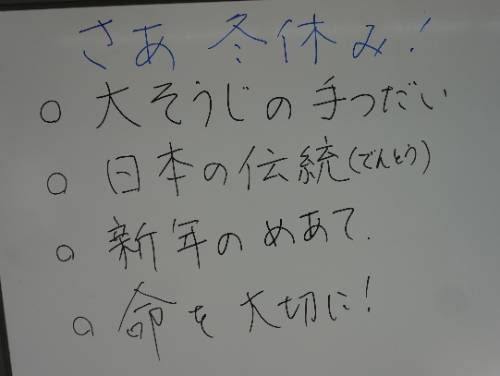 さあ 冬休み!
○ 大そうじの手つだい
○ 日本の伝統(でんとう)
○ 新年のめあて.
○ 命を大切に!